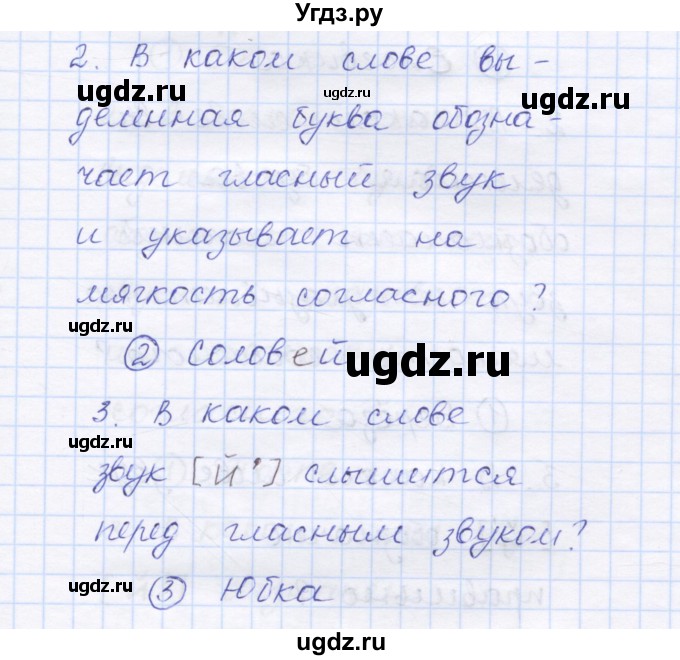 Угдз.ру
2. В каком слове вы-
деленная буква обозна-
чает гласный звук
и указывает на
мягкость согласного?
② Соловей
3. В каком слове
звук [й'] слышится
перед гласным звуком?
③ Юбка
ugdz.ru
ugdz.ru
ugdz.ru
ugdz.ru
ugdz.ru
ugdz.ru
ugdz.ru
ugdz.ru
ugdz.ru